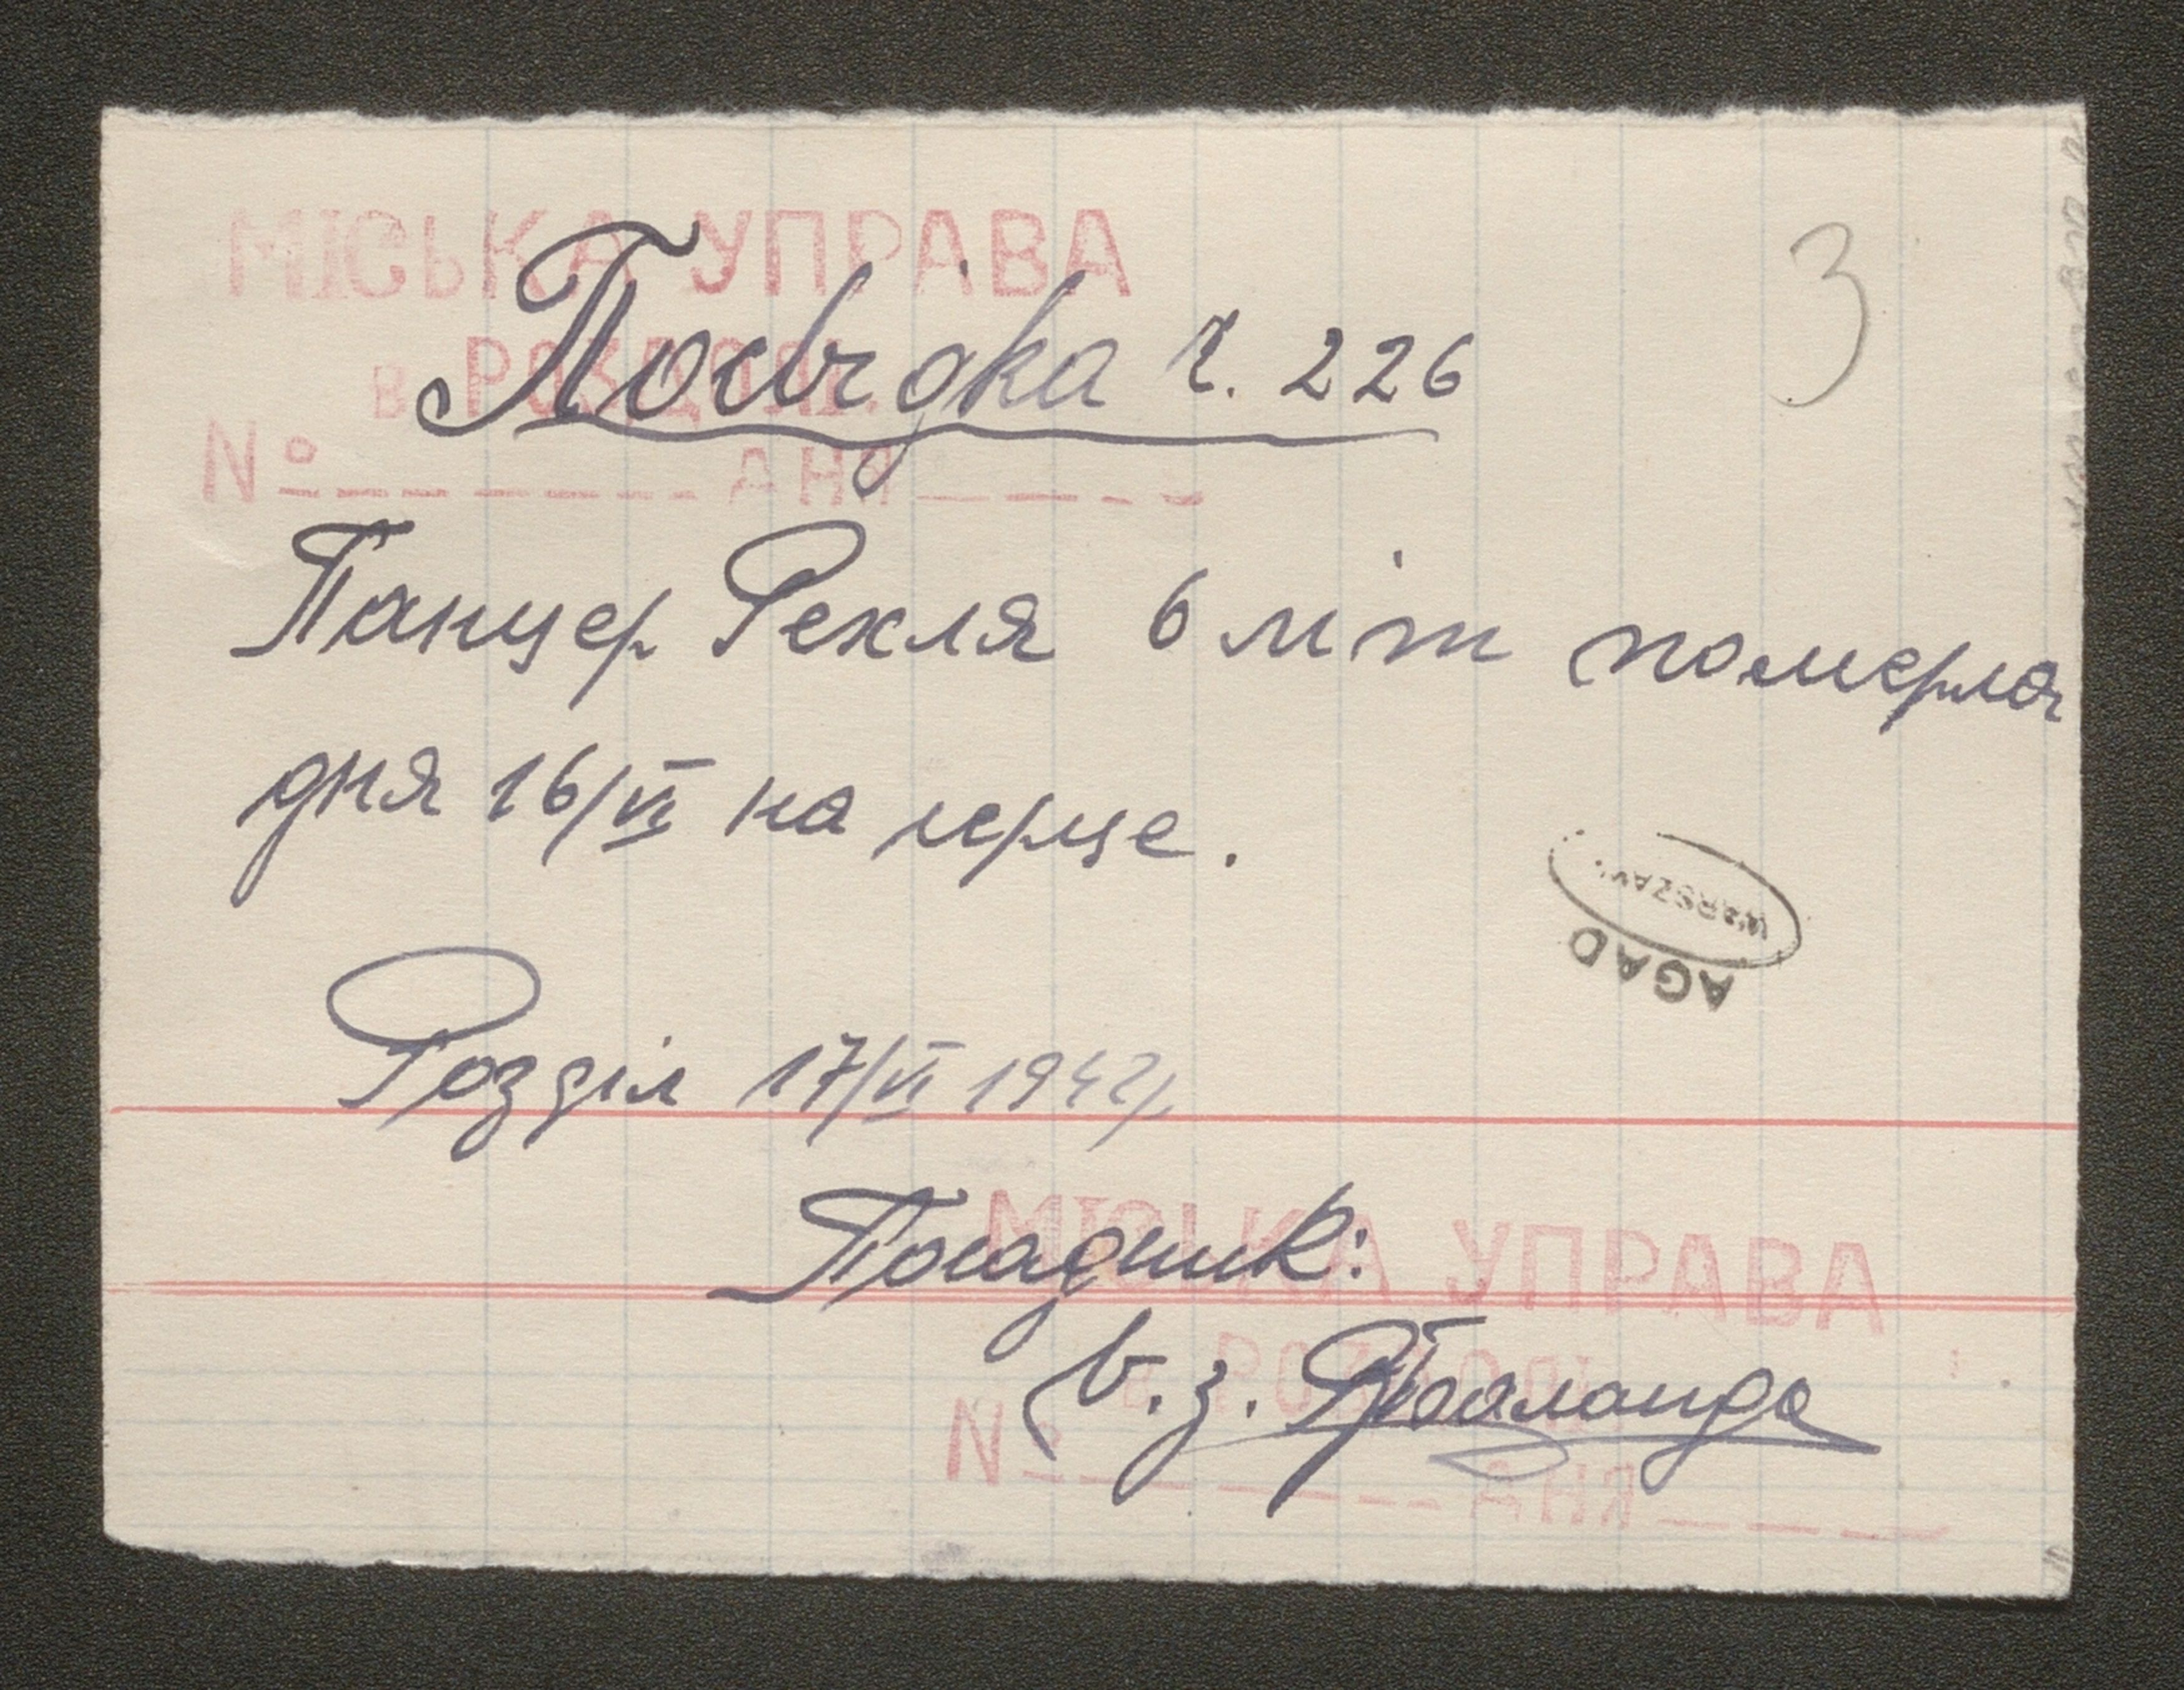 МІСЬКА УПРАВА
в РОЗДОЛІ.
Посвідка ч. 226
3
№ ДНЯ
Панцер Рехля 6 літ померла
дня 16/VI на серце.
WARSZAWA
AGAD
Розділ 17/VI 1942 р.
МІСЬКА УПРАВА
Посадник:
в РОЗДОЛІ
в. з.
№ ДНЯ